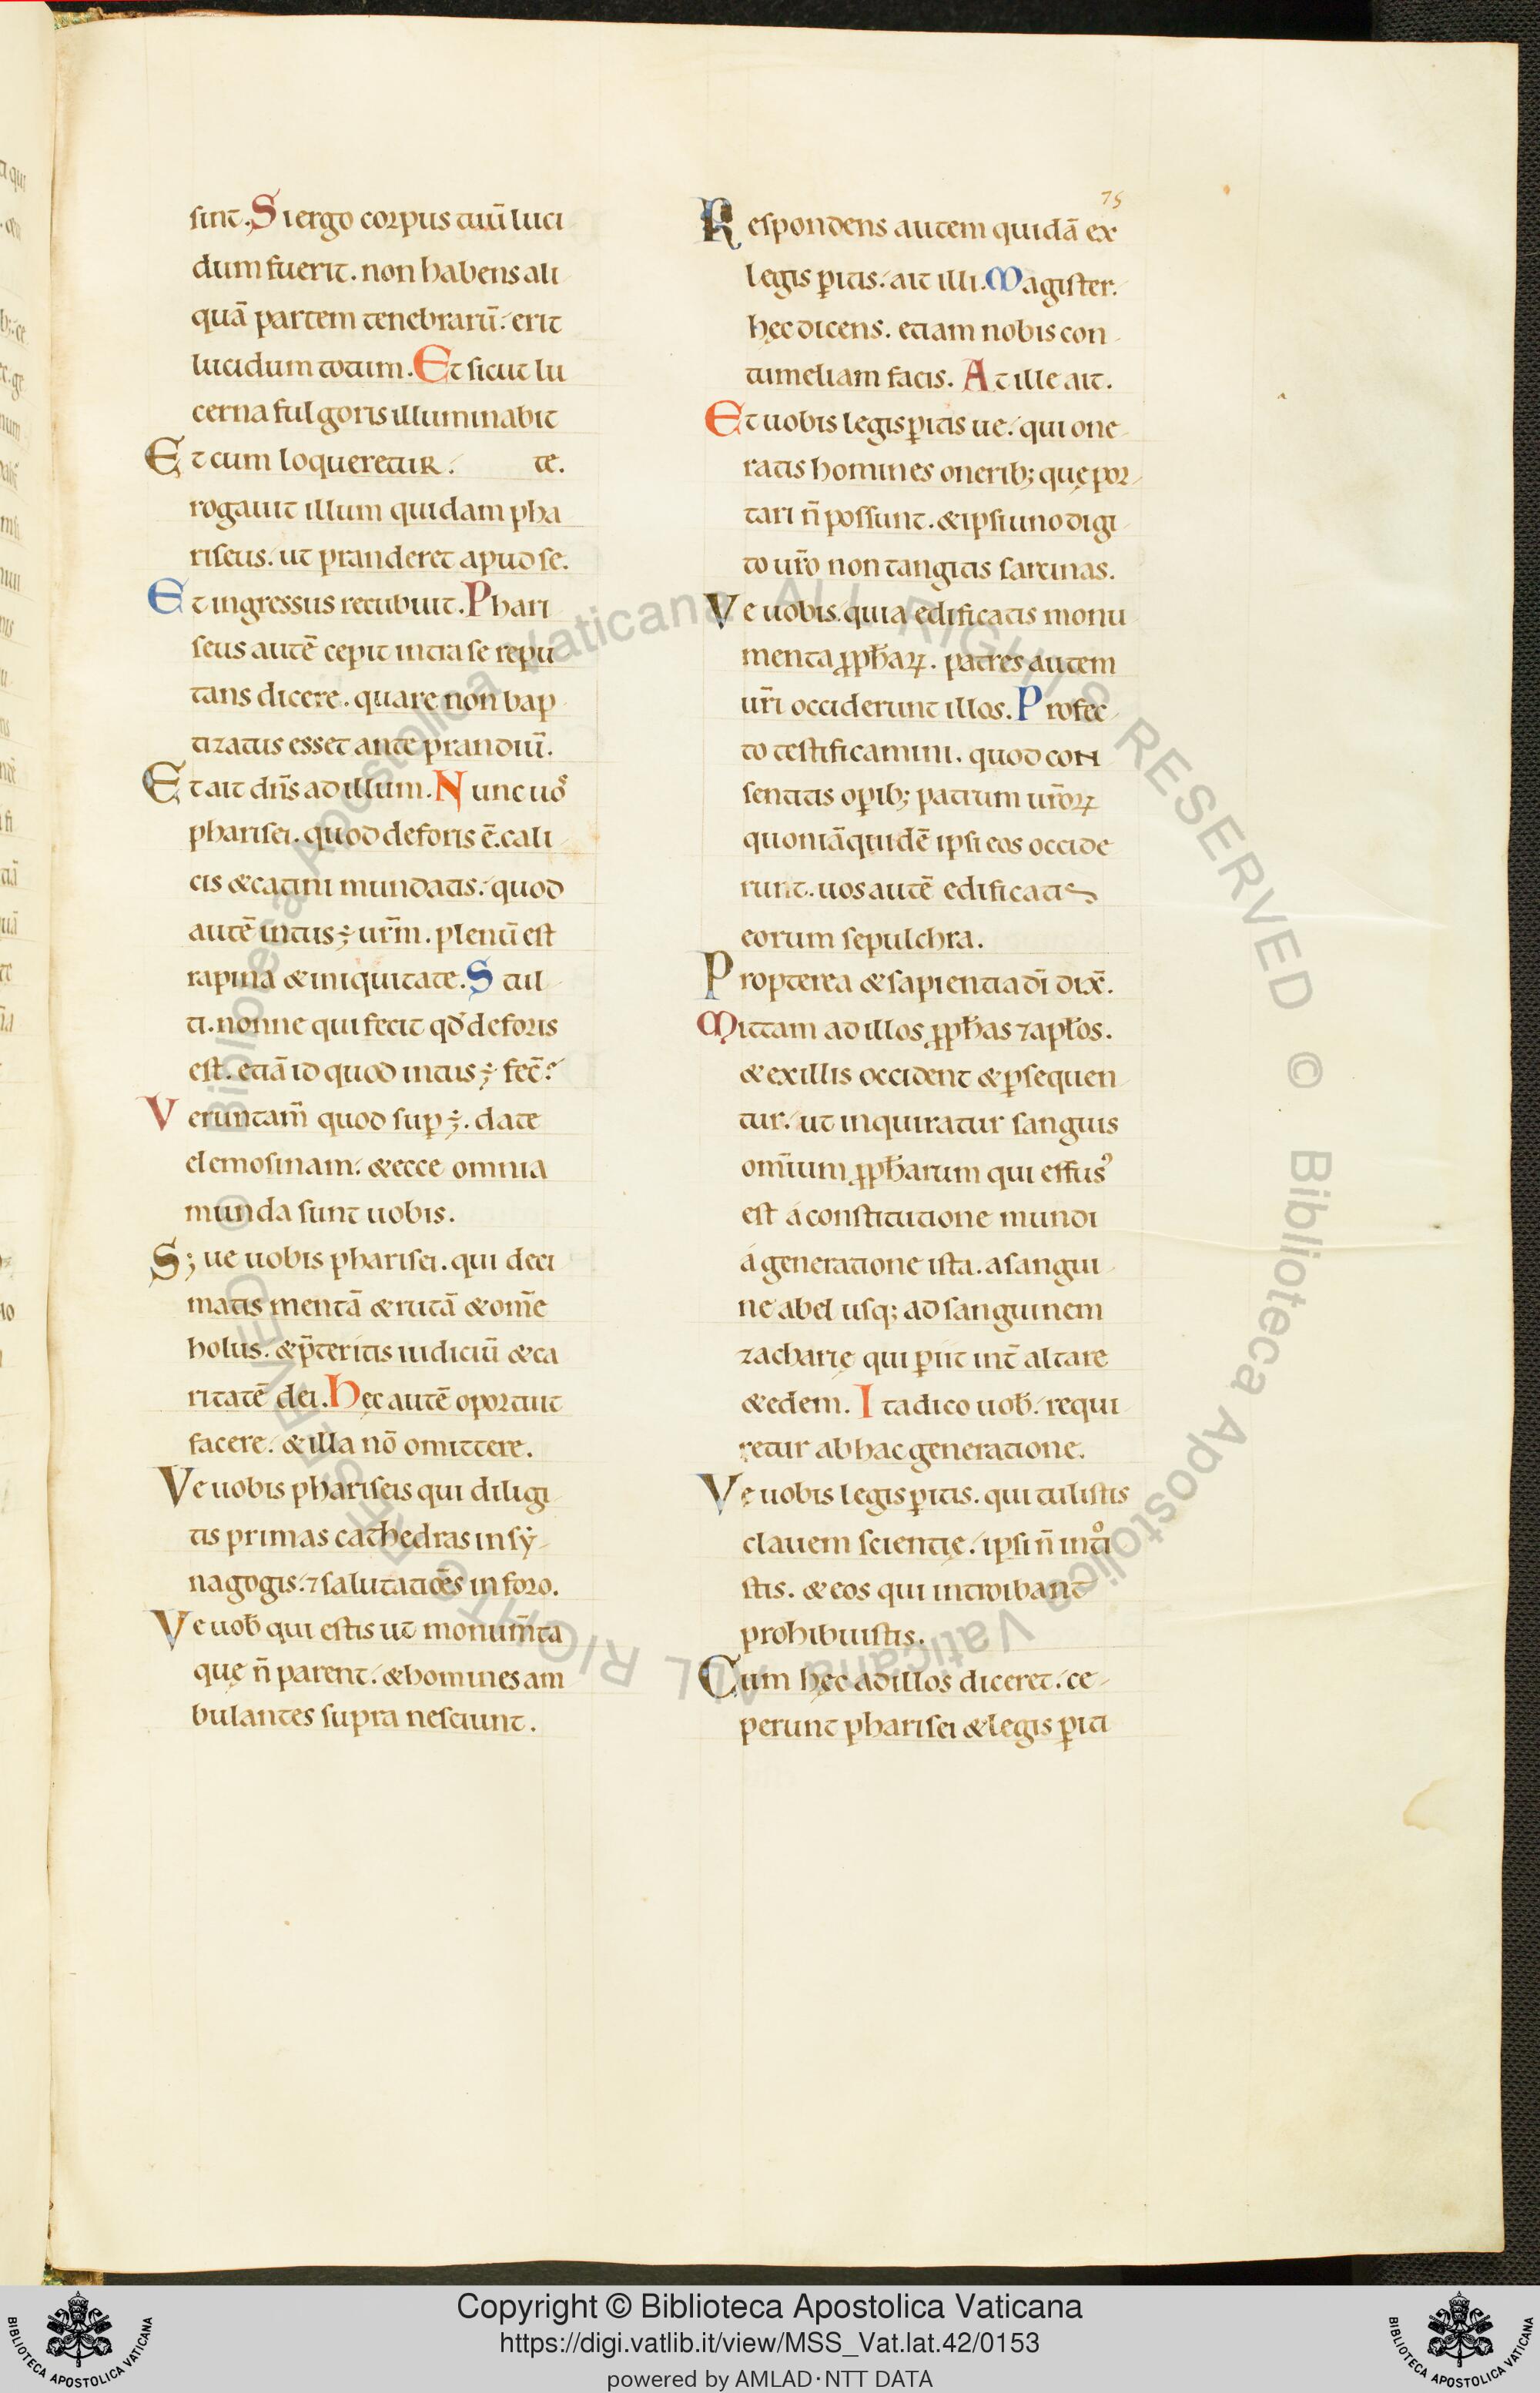 75
sint̄. Si ergo corpus tuū luci
dum fuerit. non habens ali
quā partem tenebrarū. erit
lucidum totum. Et sicut lu
cerna fulgoris illuminabit
Et cum loqueretur. te.
rogauit illum quidam pha
riseus. ut pranderet apud se.
Et ingressus recubuit. Phari
seus autē cepit intra se repu
tans dicere. quare non bap
tizatus esset ante prandiū.
Et ait dn̄s ad illum. Nunc uos
pharisei. quod deforis ē. cali
cis & catini mundatis. quod
autē intus ÷ ur̄m. plenū est
rapina & iniquitate. Stul
ti. nonne qui fecit qđ deforis
est. etiā id quod intus ÷ fec̄?
Veruntam̄ quod sup̱ ÷. date
elemosinam. & ecce omnia
munda sunt uobis.
S; ue uobis pharisei. qui deci
matis mentā & rutā & om̄e
holus. & p̄teritis iudiciū & ca
ritatē dei. Hęc autē oportuit
facere. & illa nō omittere.
Ve uobis phariseis qui diligi
tis primas cathedras in sy
nagogis. ⁊ salutatiōes in foro.
Ve uob̄ qui estis ut monum̄ta
quę n̄ parent. & homines am
bulantes supra nesciunt.
Respondens autem quidā ex
legis ꝑitis. ait illi. Magister.
hęc dicens. etiam nobis con
tumeliam facis. At ille ait.
Et uobis legisꝑitis ue. qui one
ratis homines onerib; quę por
tari n̄ possunt. & ipsi uno digi
to ur̄o non tangitis sarcinas.
Ve uobis. quia edificatis monu
menta ꝓph̄aꝝ. patres autem
ur̄i occiderunt illos. Profec
to testificamini. quod con
sentitis oꝑib; patrum ur̄oꝝ
quoniā quidē ipsi eos occide
runt. uos autē edificatis
eorum sepulchra.
Propterea & sapientia dī dix̄.
Mittam ad illos ꝓph̄as ⁊ apl̄os.
& ex illis occident & ꝑsequen
tur. ut inquiratur sanguis
om̄ium ꝓph̄arum qui effusꝰ
est á constitutione mundi
á generatione ista. a sangui
ne abel usq; ad sanguinem
zacharię qui ꝑiit int̄ altare
& edem. Ita dico uob̄. requi
retur ab hac generatione.
Ve uobis legisꝑitis. qui tulistis
clauem scientię. ipsi n̄ intͦi
stis. & eos qui introibant
prohibuistis.
Cum hęc ad illos diceret. ce
perunt pharisei & legis ꝑiti
© Biblioteca Apostolica Vaticana ALL RIGHTS RESERVED © Biblioteca Apostolica Vaticana ALL RIGHTS RESERVED
Copyright © Biblioteca Apostolica Vaticana
https://digi.vatlib.it/view/MSS_Vat.lat.42/0153
powered by AMLAD·NTT DATA
BIBLIOTECA APOSTOLICA VATICANA
BIBLIOTECA APOSTOLICA VATICANA